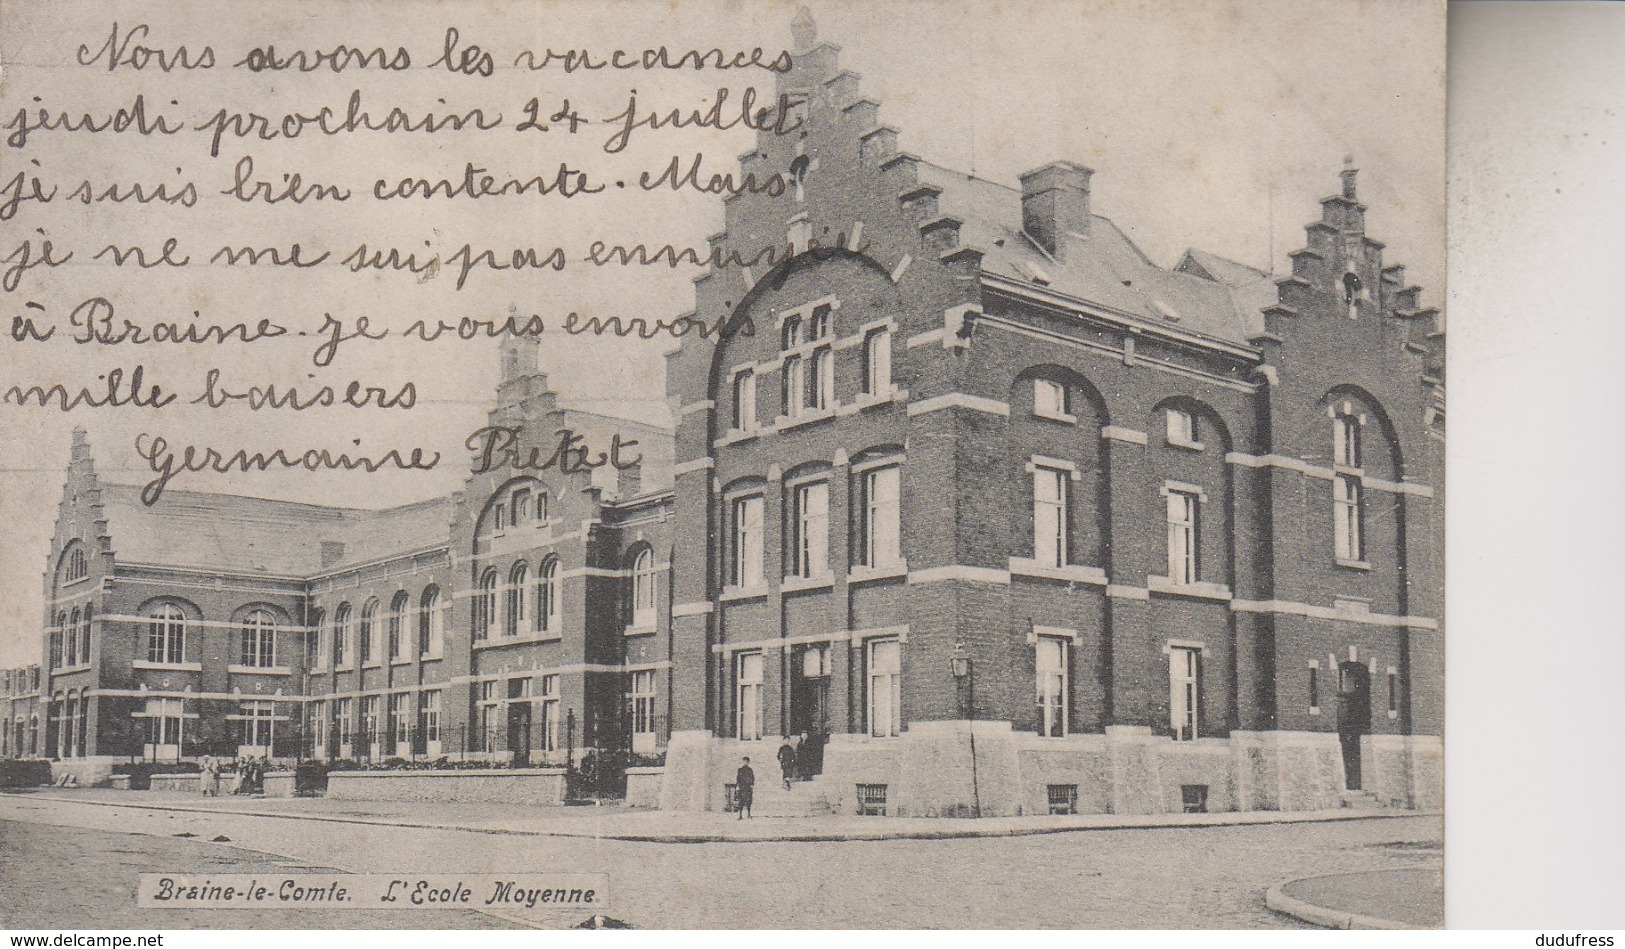 Nous avons les vacances
jeudi prochain 24 juillet.
je suis bien contente. Mais
je ne me suis pas ennuyée
à Braine. je vous envois
mille baisers
Germaine
Braine-le-Comte. L'Ecole Moyenne.
www.delcampe.net
dudufress